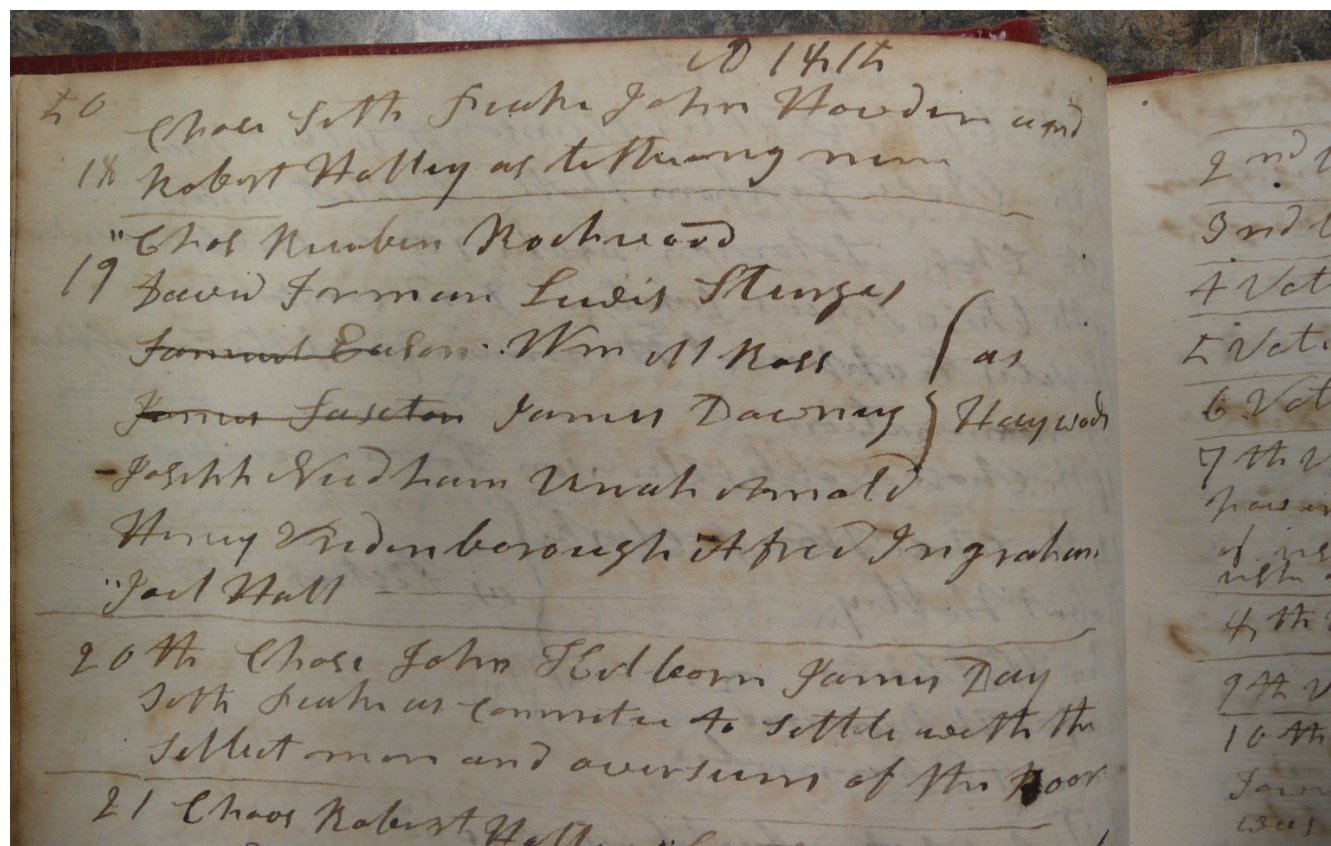 AD 1815
50
Chose Seth Peake John Howdin and
18 Robert Holley as tetheang men
" Chos Reuben Rockwood
19 David Forman Lewis Sturges
Samuel Eason Wm M Ross as
James Saxeton James Dawney Haywods
Joseph Needham Uriah Arnold
Henry Vredenborough Afred Ingraham
" Joel Hall
20th Chose John Hilborn James Day
Seth Peake as commetee to settle with the
Sellect men and overseurs of the Poor
21 Choos Robert
2nd
3rd
4 Vot
5 Vot
6 Vot
7th V
of
4th
9th V
10th
was